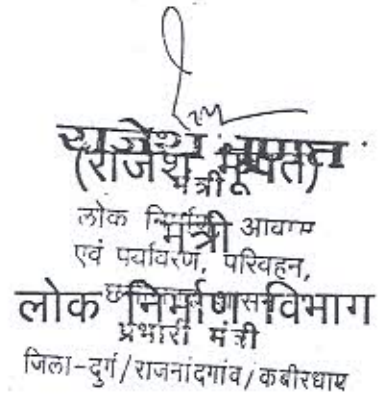 राजेश मूणत
(राजेश मूणत)
मंत्री
लोक निर्माण, आवास
मंत्री
एवं पर्यावरण, परिवहन,
लोक निर्माण विभाग
प्रभारी मंत्री
जिला-दुर्ग/राजनांदगांव/कबीरधाम